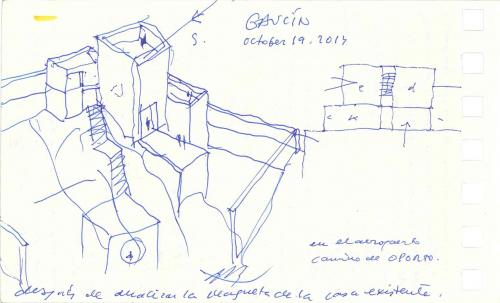 GAUCÍN
S. october 19. 2014
e d
c k
en el aeropuerto
camino de OPORTO.
después de analizar la maqueta de la casa existente.